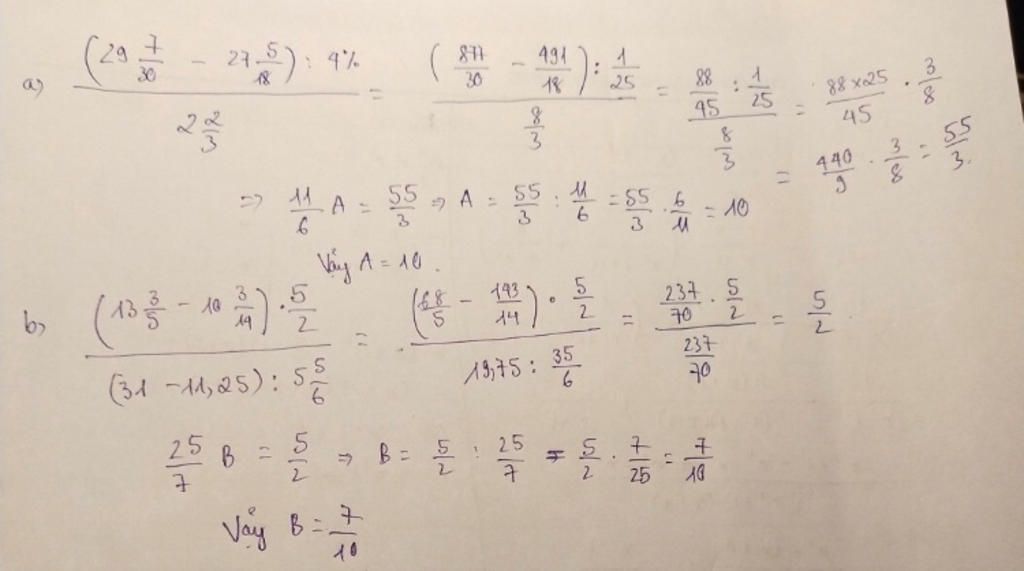 a) ((29 7/30 - 27 5/18) : 4%) / (2 2/3) = ((877/30 - 491/18) : 1/25) / (8/3) = (88/45 : 1/25) / (8/3) = (88×25)/45 · 3/8
= 440/9 · 3/8 = 55/3.
⇒ 11/6 A = 55/3 ⇒ A = 55/3 : 11/6 = 55/3 · 6/11 = 10
Vậy A = 10.
b) ((13 3/5 - 10 3/14) · 5/2) / ((31 - 11,25) : 5 5/6) = ((68/5 - 143/14) · 5/2) / (19,75 : 35/6) = (237/70 · 5/2) / (237/70) = 5/2.
25/7 B = 5/2 ⇒ B = 5/2 : 25/7 = 5/2 · 7/25 = 7/10
Vậy B = 7/10